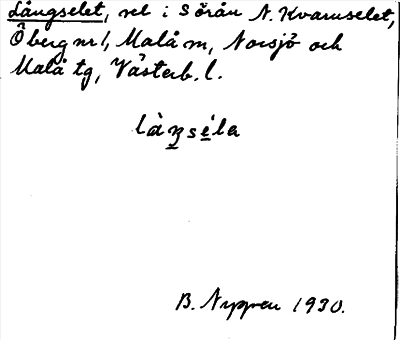 Långselet, sel i Sörån N. Kvarnselet,
Öberg nr 1, Malå m, Norsjö och
Malå tg, Västerb. l.
làŋséla
B. Nyppen 1930.